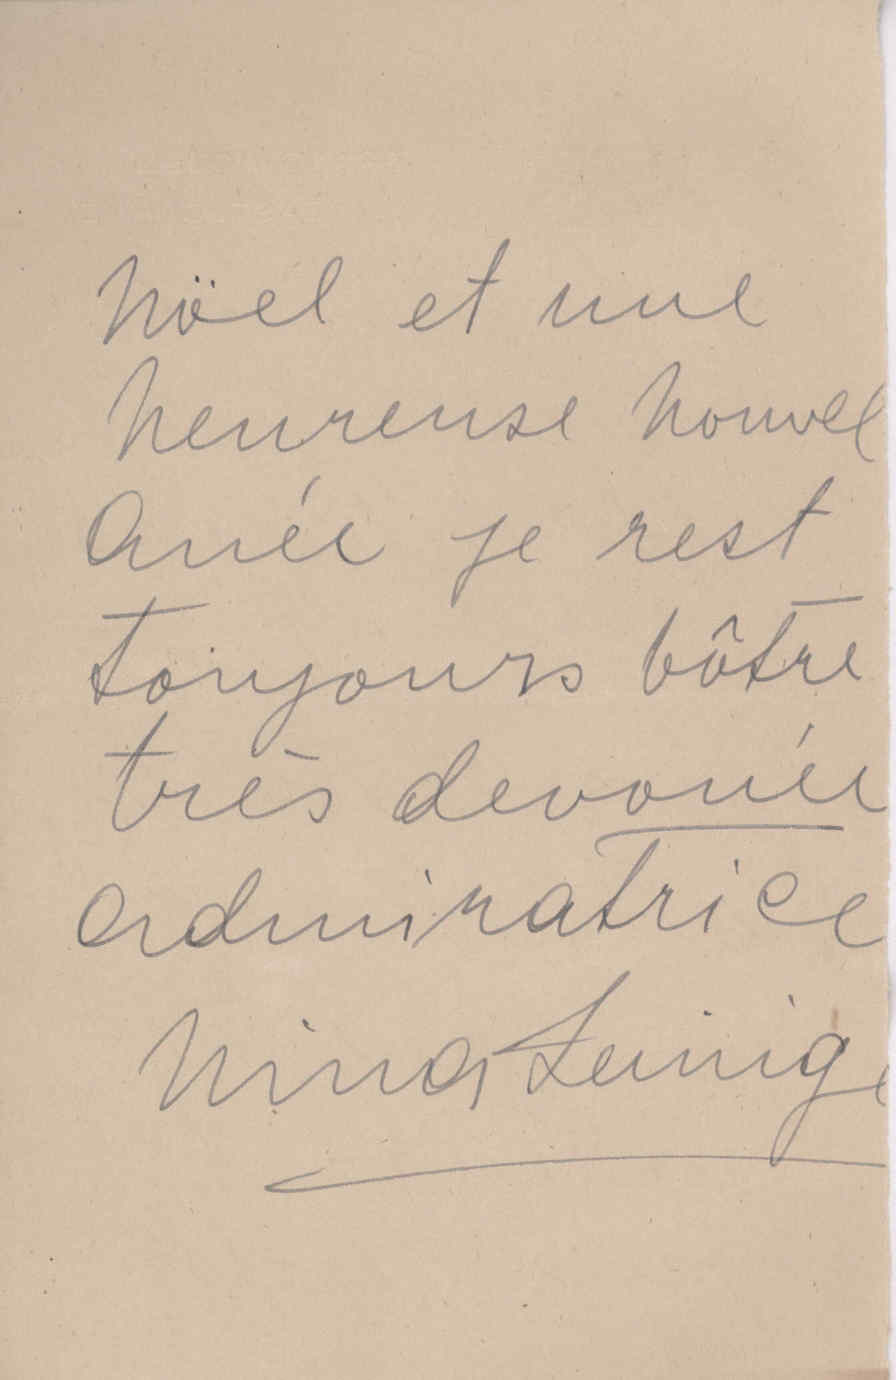 Nöel et une
heureuse nouvel
anée je rest
toujours vôtre
très devouée
admiratrice
Nina